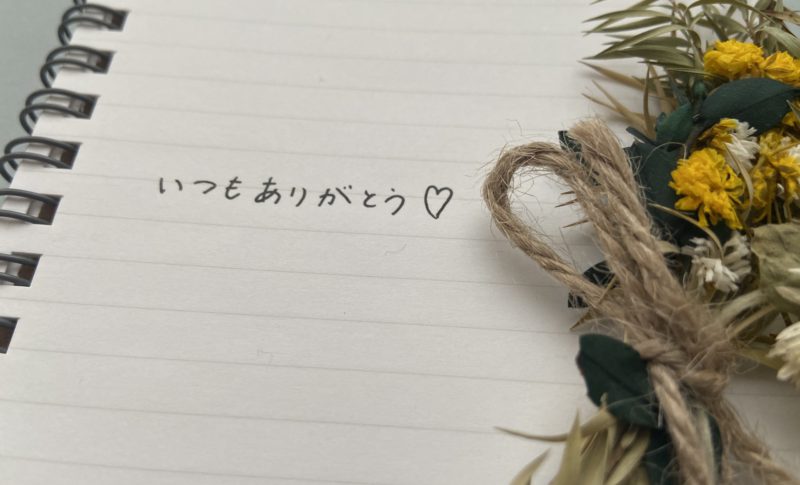 いつもありがとう♡